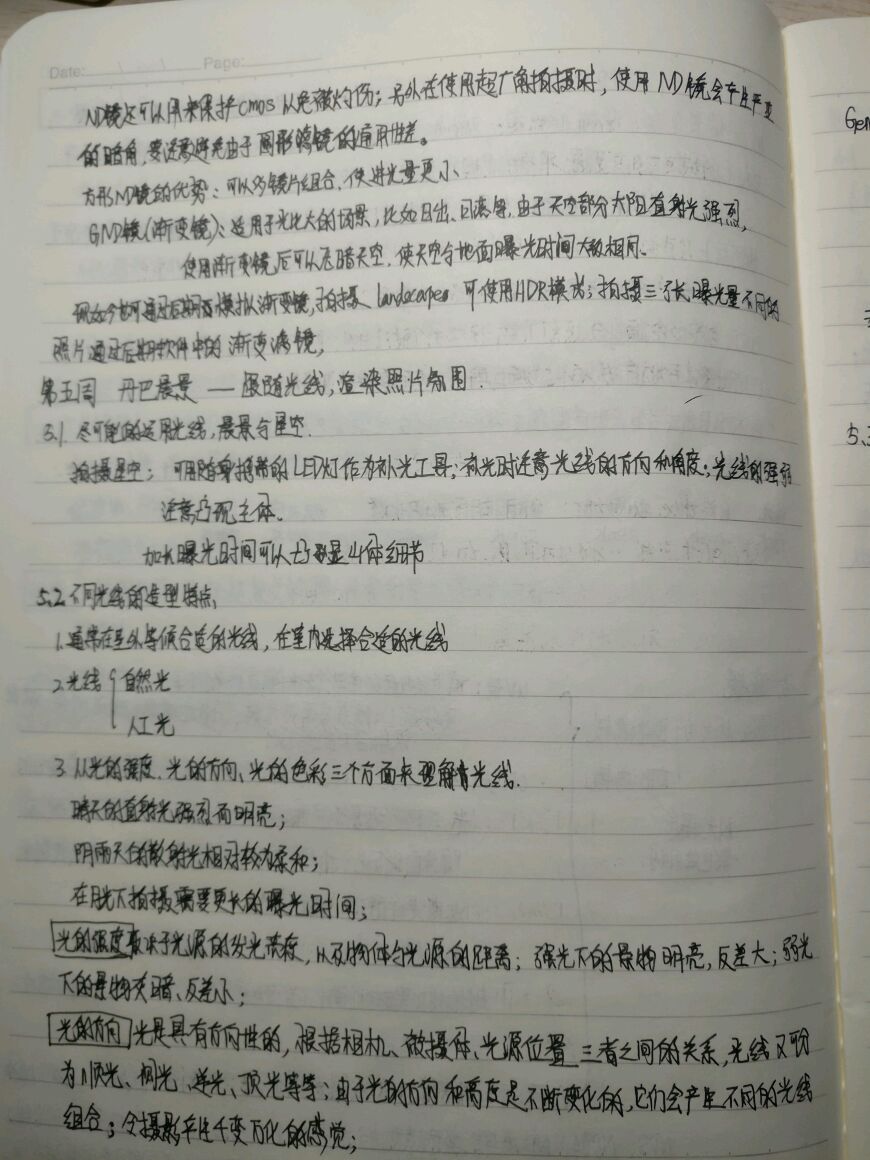 Date: Page:
ND镜还可以用来保护cmos以免被灼伤；另外在使用超广角拍摄时，使用ND镜会产生严重
的暗角，要注意避免由于圆形滤镜的通用性差。
方形ND镜的优势：可以多镜片组合，使进光量更小、
GND镜(渐变镜)：适用于光比大的场景，比如日出、日落等，由于天空部分太阳直射光强烈，
使用渐变镜后可以压暗天空，使天空与地面曝光时间大致相同。
现如今也可通过后期模拟渐变镜，拍摄 landscapes 可使用HDR模式；拍摄三张曝光量不同的
照片通过后期软件中的渐变滤镜，
第五周 丹巴晨景 — 跟随光线，渲染照片氛围
5.1 尽可能的运用光线，晨景与星空.
拍摄星空；可用随身携带的LED灯作为补光工具；补光时注意光线的方向和角度；光线的强弱
注意凸现主体.
加长曝光时间可以凸显山体细节
5.2 不同光线的造型特点，
1.通常在室外等候合适的光线，在室内选择合适的光线
2.光线 自然光
人工光
3.从光的强度、光的方向、光的色彩三个方面来理解光线.
晴天的直射光强烈而明亮；
阴雨天的散射光相对较为柔和；
在月光下拍摄需要更长的曝光时间；
光的强度取决于光源的发光强度，以及物体与光源的距离；强光下的景物明亮，反差大；弱光
下的景物灰暗、反差小；
光的方向 光是具有方向性的，根据相机、被摄体、光源位置 三者之间的关系，光线又可分
为顺光、侧光、逆光、顶光等等；由于光的方向和高度是不断变化的，它们会产生不同的光线
组合；令摄影产生千变万化的感觉；
Gen
5.3